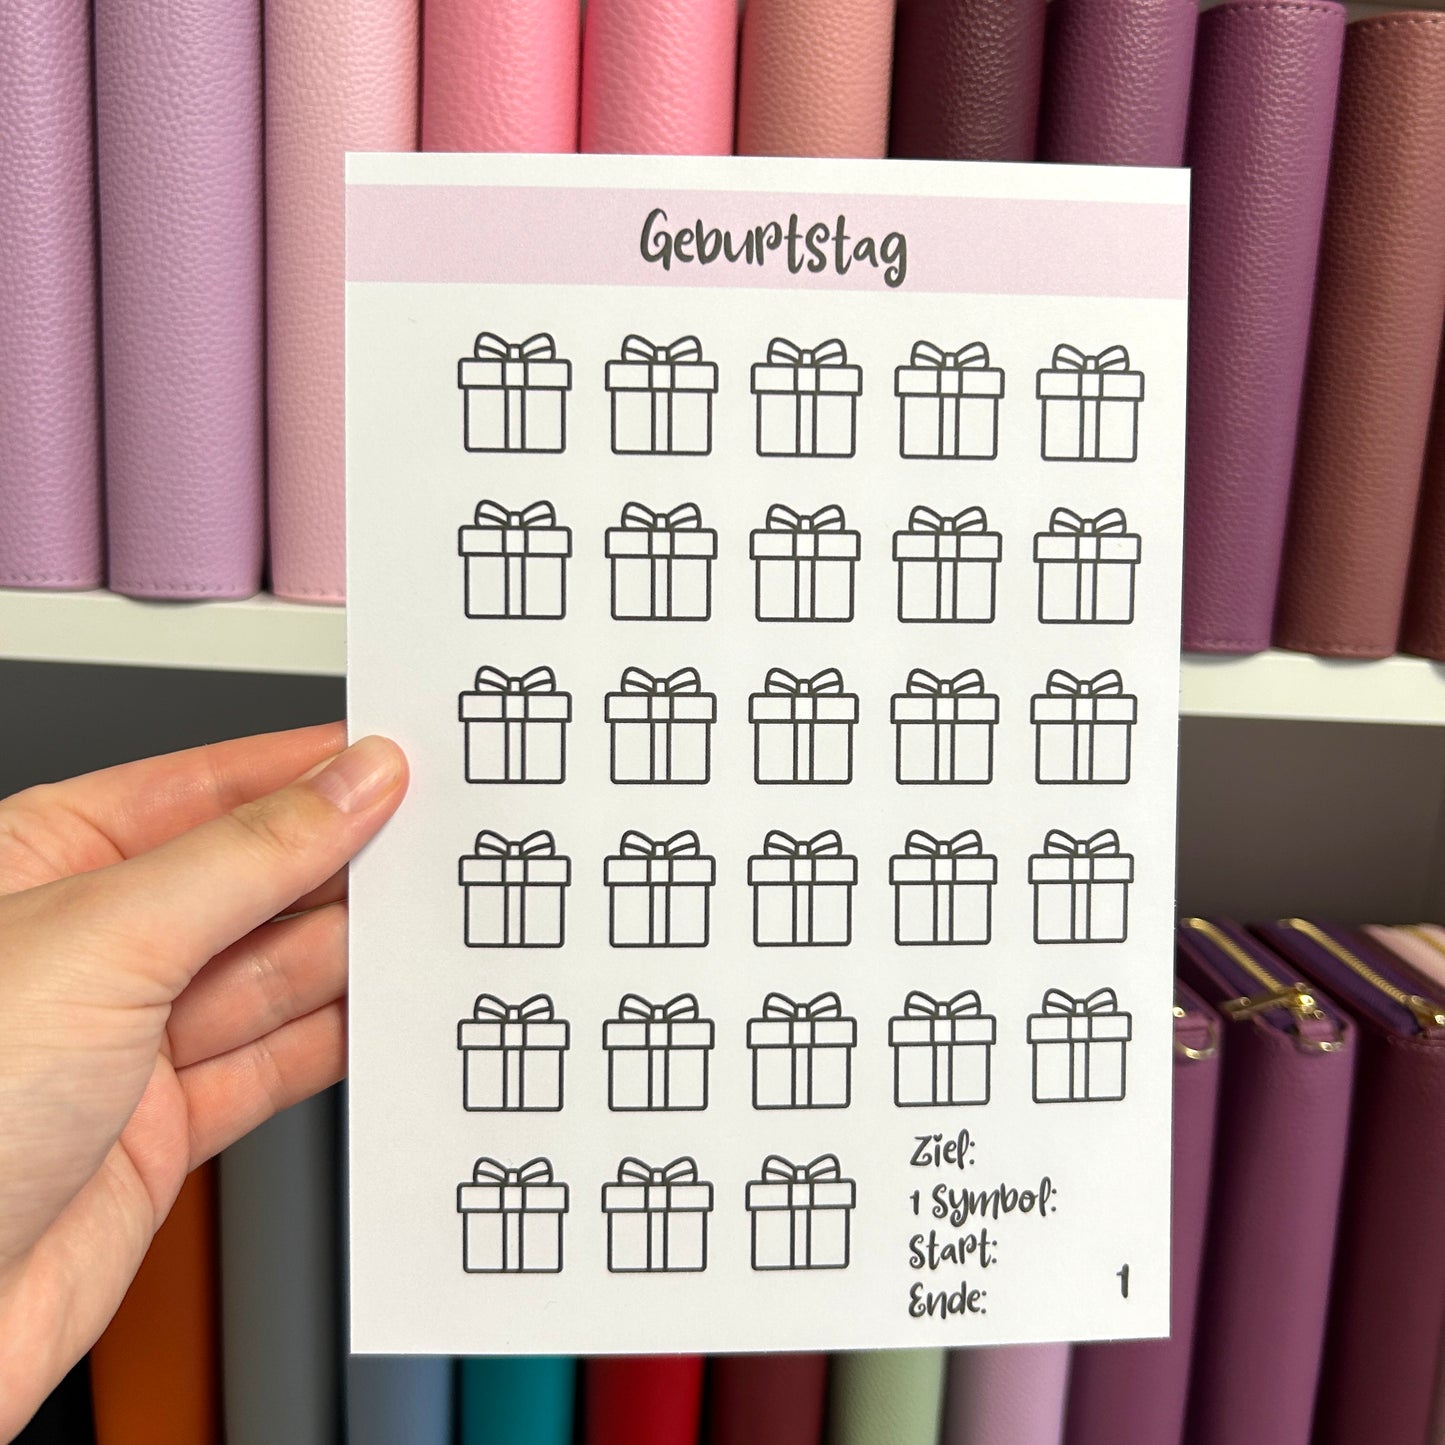 Geburtstag
Ziel:
1 Symbol:
Start:
Ende:
1